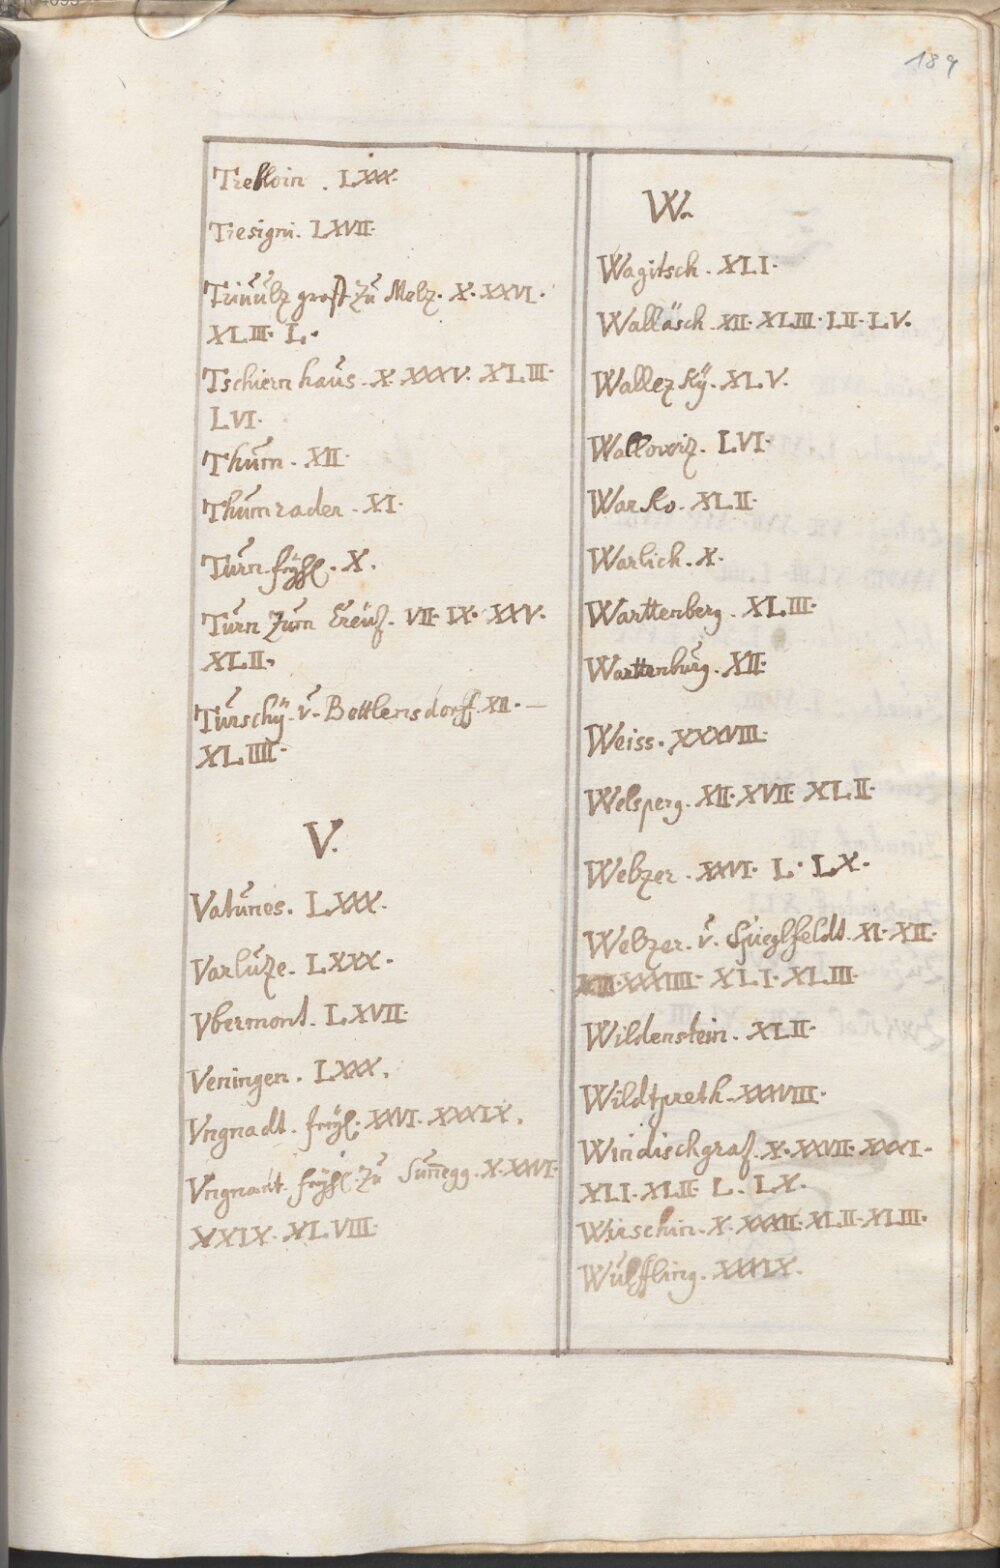 189
Trebloin. LXXX.
Tresigni. LXVII.
Triuulz groff Zu Melz. X. XXVI.
XLIII. L.
Tschiernhaus. X. XXXV. XLIII.
LVI.
Thurn. XII.
Thumraden. XI.
Turn. X.
Turn Zum Creuz. VII. IX. XXV.
XLII.
Turschÿ. v. Bottlensdorff. XII. —
XLIIII.
V.
Vatunes. LXXX.
Varluze. LXXX.
Vbermont. LXVII.
Veningen. LXXX.
Vngnadt. XXVI. XXXIX.
Vngnant. Zu Sunegg. X. XXVI.
XXIX. XLVIII.
W.
Wagitsch. XLI.
Walläsch. XII. XLIII. LII. LV.
Wallezkÿ. XLV.
Wallowiz. LVI.
Warko. XLII.
Warlich. X.
Warttenberg. XLIII.
Warttenburg. XII.
Weiss. XXXVIII.
Welsperg. XII. XVII. XLII.
Welzer. XXVI. L. LX.
Welzer. v. Spieglfeldt. XI. XII.
XIII. XXXIIII. XLI. XLIII.
Wildenstein. XLII.
Wildtpreth. XXXVIII.
Windischgraz. X. XXVII. XXXI.
XLI. XLII. L. LX.
Wirschin. X. XXXII. XLII. XLIII.
Wulffling. XXXIX.